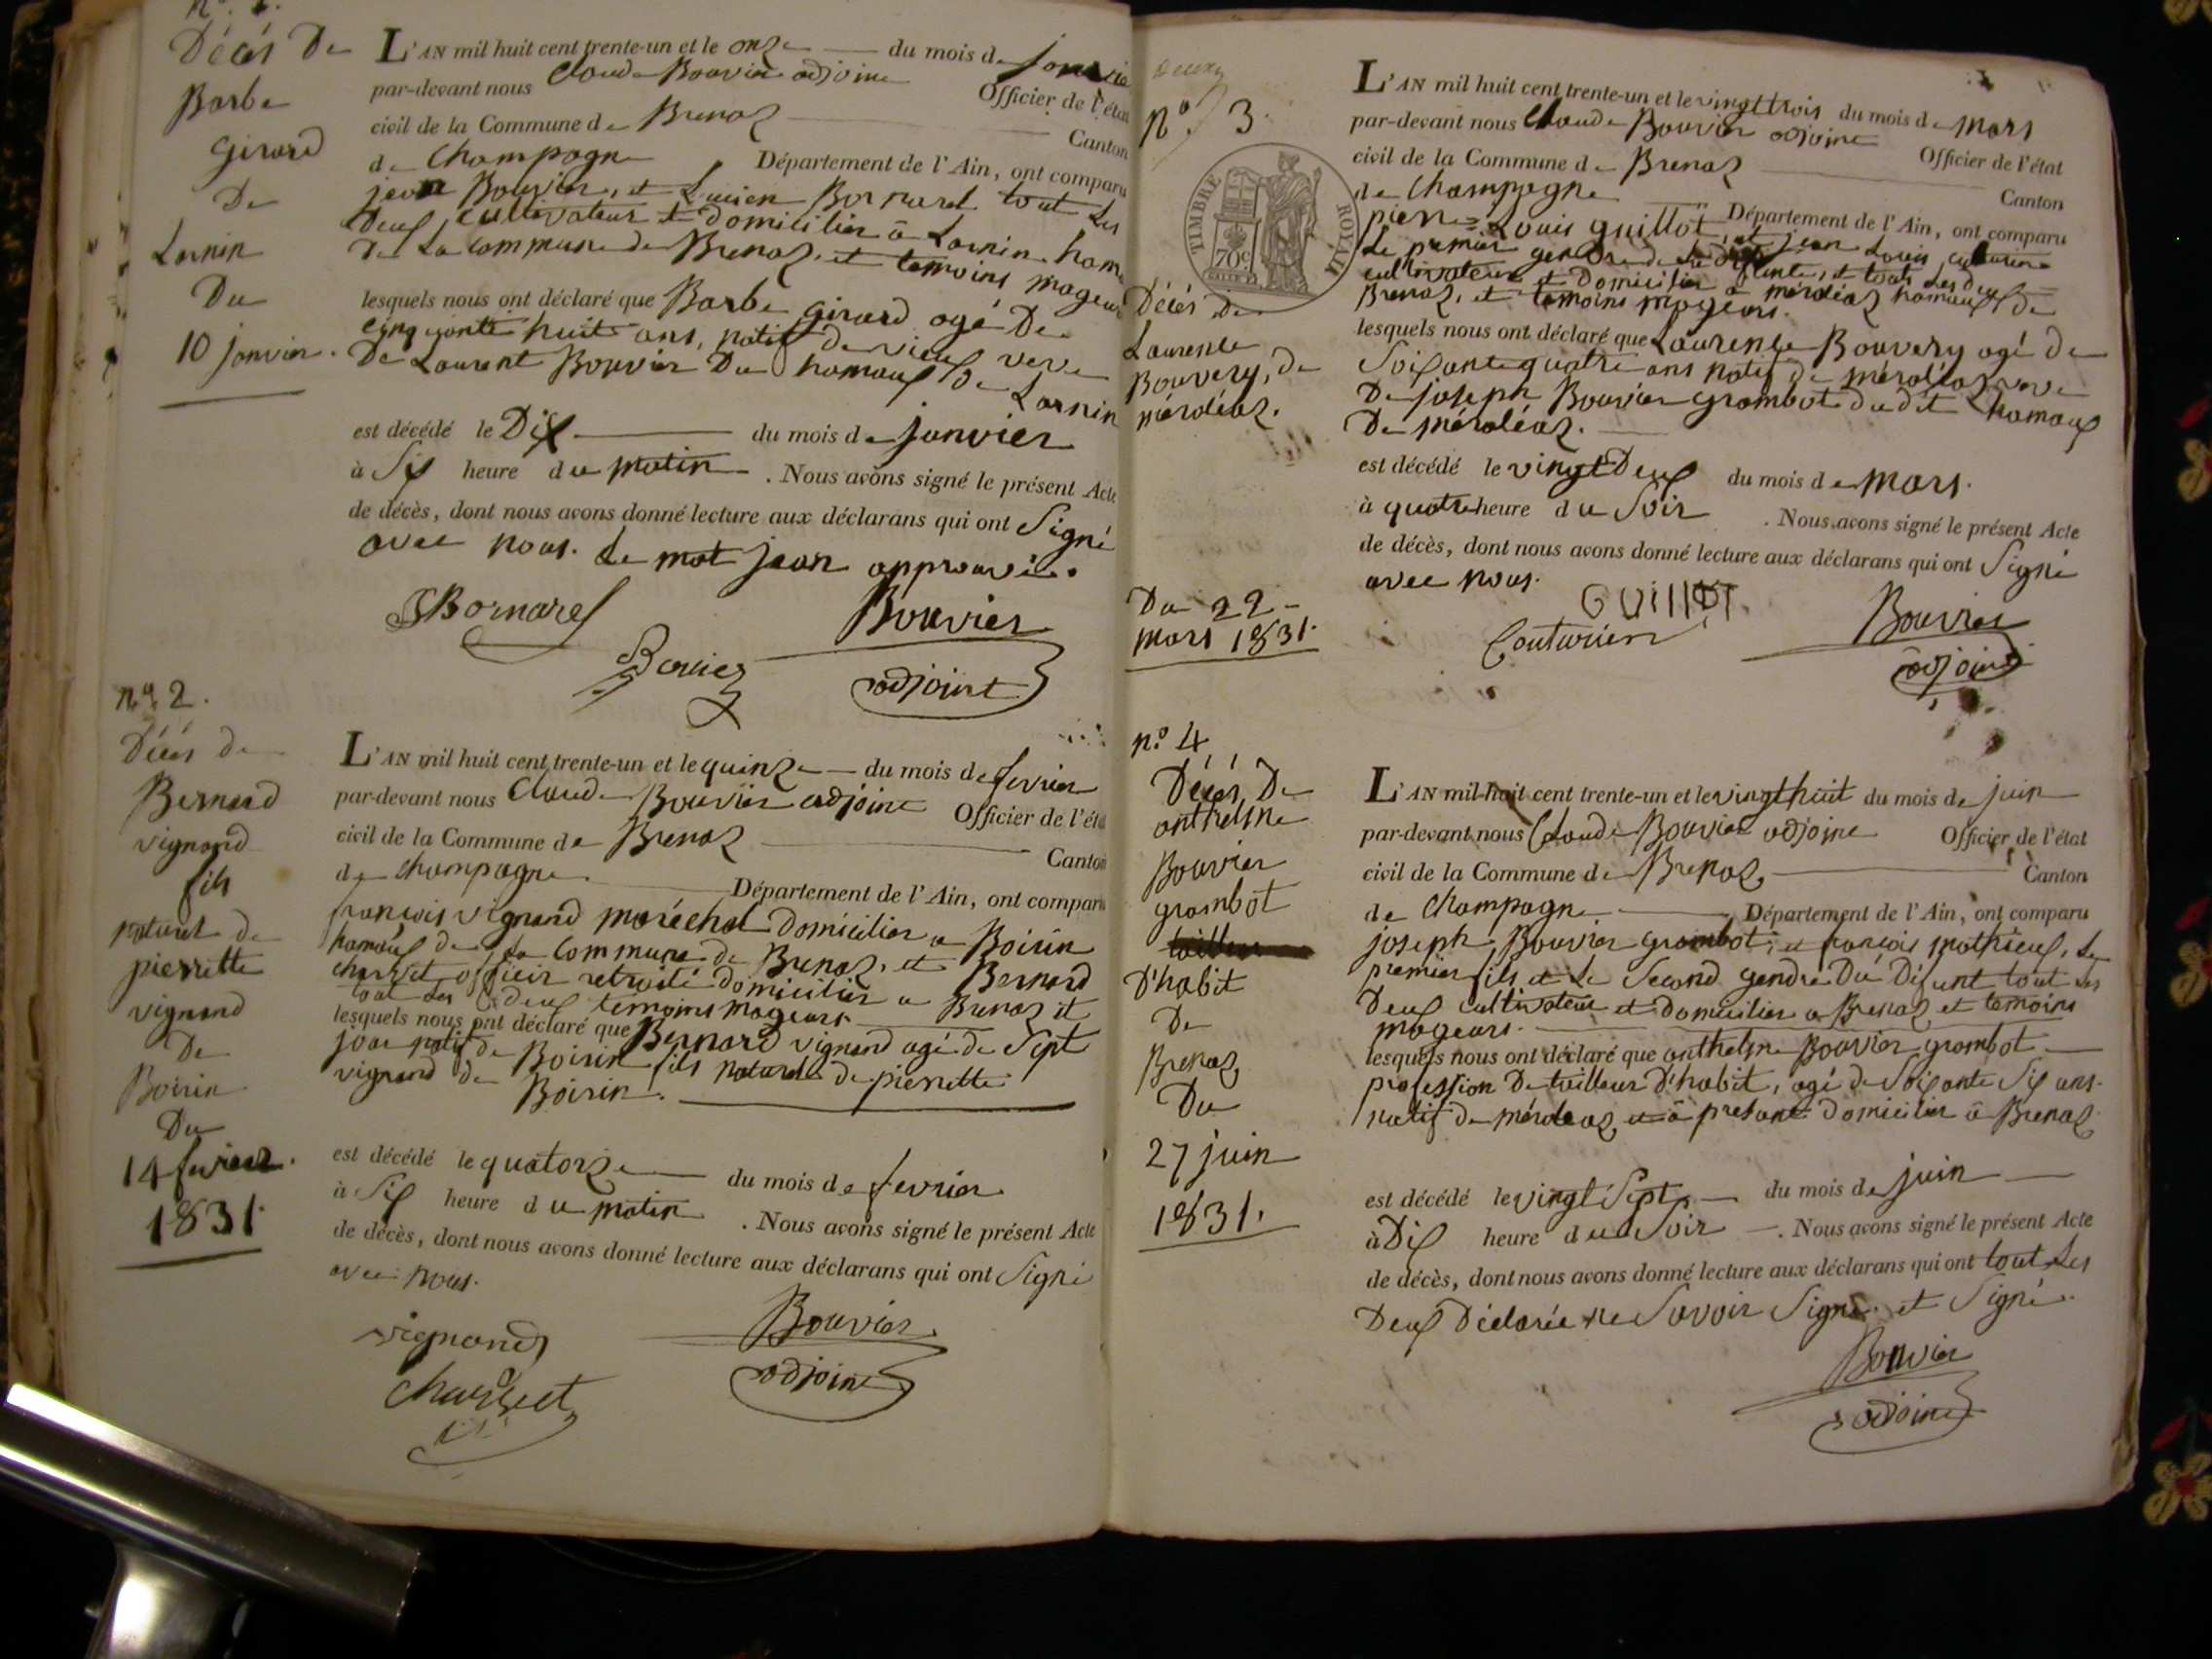 n.º 1.
Décés De
Barbe
Girard
De
Lornin
Du
10 janvier.
L'AN mil huit cent trente-un et le onze du mois de janvier
par-devant nous Claude Bouvier adjoint Officier de l'état
civil de la Commune de Brenaz Canton
de Champagne Département de l'Ain, ont comparu
jean Bouvier, et Lucien Bornarel tout Les
Deux cultivateur et Domicilier à Lornin hame
De La commune de Brenaz, et temoins mageurs
lesquels nous ont déclaré que Barbe girard agé De
cinquante huit ans, natif de vieux veve
De Laurent Bouvier Du hamaux de Lornin
est décédé le Dix du mois de janvier
à Six heure du matin. Nous avons signé le présent Acte
de décès, dont nous avons donné lecture aux déclarans qui ont Signé
avec nous. Le mot jean approuvé.
Bornarel Bouvier
Bouvier adjoint
n.º 2.
Décés de
Bernard
vignand
fils
naturel de
pierrette
vignand
De
Boirin
Du
14 fevrier.
1831.
L'AN mil huit cent trente-un et le quinze du mois de fevrier
par-devant nous Claude Bouvier adjoint Officier de l'état
civil de la Commune de Brenaz Canton
de champagne Département de l'Ain, ont comparu
françois vignand maréchal Domicilier a Boirin
hamaux de La Commune de Brenaz, et Bernard
officier retraité domicilier a Brenaz et
tout Les deux temoins mageurs.
lesquels nous ont déclaré que Bernard vignand agé de Sept
jour natif de Boirin fils naturel de pierrette
vignand de Boirin.
est décédé le quatorze du mois de fevrier
à Six heure du matin. Nous avons signé le présent Acte
de décès, dont nous avons donné lecture aux déclarans qui ont Signé
avec nous.
vignand Bouvier
adjoint
n.º 3.
TIMBRE ROYAL
70c
Décés De
Laurence
Bouvery, de
méraléaz.
Du 22
mars 1831.
L'AN mil huit cent trente-un et le vingt trois du mois de mars
par-devant nous Claude Bouvier adjoint Officier de l'état
civil de la Commune de Brenaz Canton
de Champagne Département de l'Ain, ont comparu
pierre Louis guillot, et jean Louis
Le premier gendre de La et tout Les deux
cultivateur et Domicilier à méraléaz hamaux de
Brenaz, et temoins mageurs.
lesquels nous ont déclaré que Laurence Bouvery agé de
Soixante quatre ans natif de méraléaz veve
De joseph Bouvier grambot du dit hamaux
De méraléaz.
est décédé le vingt Deux du mois de mars.
à quatre heure du Soir. Nous avons signé le présent Acte
de décès, dont nous avons donné lecture aux déclarans qui ont Signé
avec nous.
GUillOT. Bouvier
Couturier adjoint
n.º 4
Décés De
anthelme
Bouvier
grambot
D'habit
De
Brenaz
Du
27 juin
1831.
L'AN mil huit cent trente-un et le vingt huit du mois de juin
par-devant nous Claude Bouvier adjoint Officier de l'état
civil de la Commune de Brenaz Canton
de Champagne Département de l'Ain, ont comparu
joseph Bouvier grambot, et françois mathieux, Le
premier fils et Le Second gendre Du Défunt tout Les
Deux cultivateur et domicilier a Brenaz et temoins
mageurs.
lesquels nous ont déclaré que anthelme Bouvier grambot
profession De tailleur D'habit, agé de Soixante Six ans.
natif de méraléaz et à présent domicilier à Brenaz
est décédé le vingt Sept du mois de juin
à Dix heure du Soir. Nous avons signé le présent Acte
de décès, dont nous avons donné lecture aux déclarans qui ont tout Les
Deux Déclarée ne Savoir Signé. et Signé.
Bouvier
adjoint